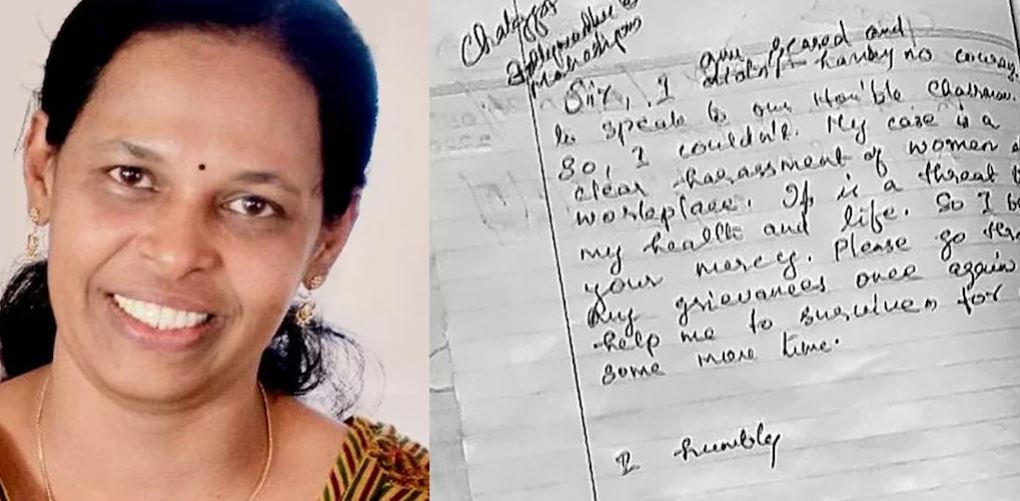 Sir, I am scared and
having no courage
to speak to our Hon'ble Chairman.
So, I couldn't. My case is a
clear harassment of women
workplace. It is a threat
my health and life. So I
your mercy. Please go
my grievances once again
help me to for
some more time.
I humbly